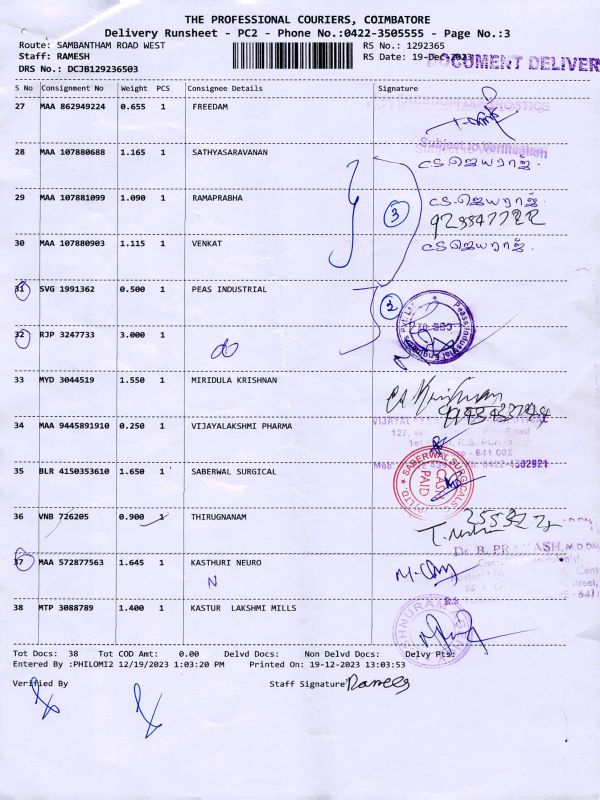 THE PROFESSIONAL COURIERS, COIMBATORE
Delivery Runsheet - PC2 - Phone No.:0422-3505555 - Page No.:3
Route: SAMBANTHAM ROAD WEST RS No.: 1292365
Staff: RAMESH RS Date: 19-Dec-2023
DOCUMENT DELIVER
DRS No.: DCJB129236503
S No Consignment No Weight PCS Consignee Details Signature
27 MAA 862949224 0.655 1 FREEDAM
Subject to Verification
28 MAA 107880688 1.165 1 SATHYASARAVANAN
C.S.ஜெயராஜ்.
29 MAA 107881099 1.090 1 RAMAPRABHA C.S.ஜெயராஜ்.
3
30 MAA 107880903 1.115 1 VENKAT C.S.ஜெயராஜ்.
31 SVG 1991362 0.500 1 PEAS INDUSTRIAL
2
32 RJP 3247733 3.000 1
do
33 MYD 3044519 1.550 1 MIRIDULA KRISHNAN
34 MAA 9445891910 0.250 1 VIJAYALAKSHMI PHARMA
641 002
35 BLR 4150353610 1.650 1 SABERWAL SURGICAL
SABERWAL SURGICALS
CASH PAID
36 VNB 726205 0.900 1 THIRUGNANAM
37 MAA 572877563 1.645 1 KASTHURI NEURO
N
38 MTP 3088789 1.400 1 KASTUR LAKSHMI MILLS
Tot Docs: 38 Tot COD Amt: 0.00 Delvd Docs: Non Delvd Docs: Delvy Pts:
Entered By :PHILOMI2 12/19/2023 1:03:20 PM Printed On: 19-12-2023 13:03:53
Verified By Staff Signature Ramesh